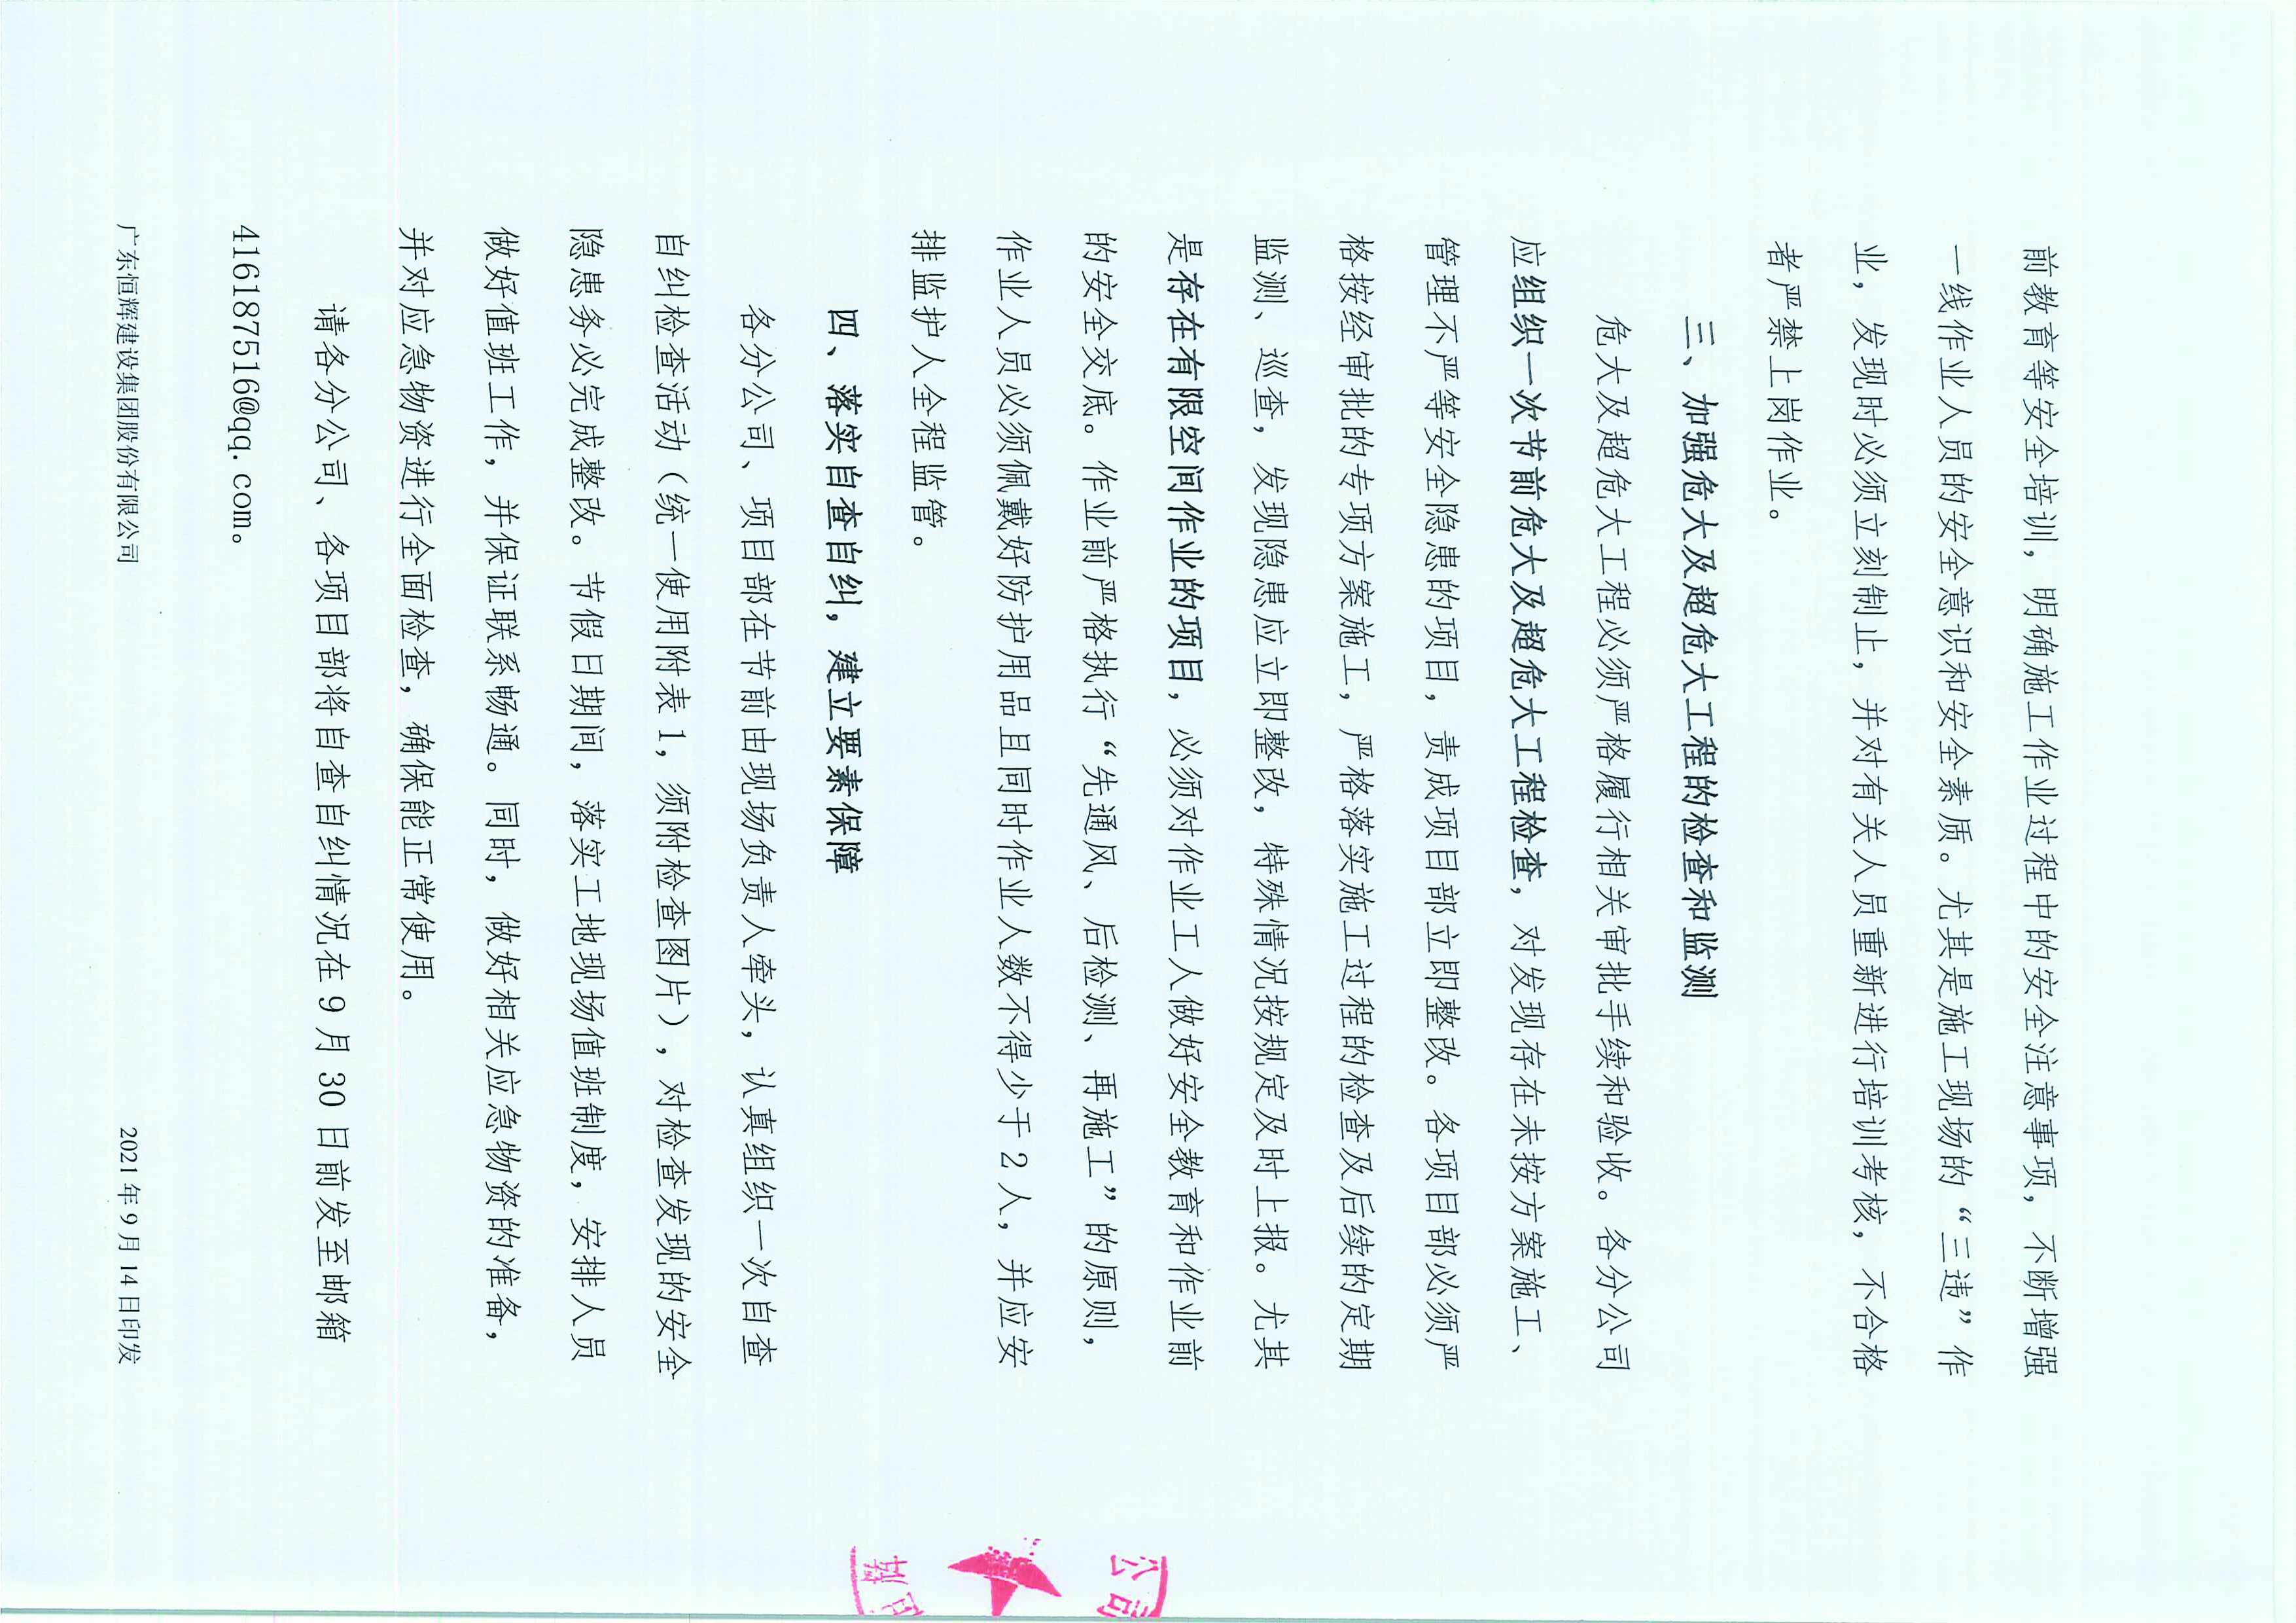 前教育等安全培训，明确施工作业过程中的安全注意事项，不断增强
一线作业人员的安全意识和安全素质。尤其是施工现场的“三违”作
业，发现时必须立刻制止，并对有关人员重新进行培训考核，不合格
者严禁上岗作业。
三、加强危大及超危大工程的检查和监测
危大及超危大工程必须严格履行相关审批手续和验收。各分公司
应组织一次节前危大及超危大工程检查，对发现存在未按方案施工、
管理不严等安全隐患的项目，责成项目部立即整改。各项目部必须严
格按经审批的专项方案施工，严格落实施工过程的检查及后续的定期
监测、巡查，发现隐患应立即整改，特殊情况按规定及时上报。尤其
是存在有限空间作业的项目，必须对作业工人做好安全教育和作业前
的安全交底。作业前严格执行“先通风、后检测、再施工”的原则，
作业人员必须佩戴好防护用品且同时作业人数不得少于2人，并应安
排监护人全程监管。
四、落实自查自纠，建立要素保障
各分公司、项目部在节前由现场负责人牵头，认真组织一次自查
自纠检查活动（统一使用附表1，须附检查图片），对检查发现的安全
隐患务必完成整改。节假日期间，落实工地现场值班制度，安排人员
做好值班工作，并保证联系畅通。同时，做好相关应急物资的准备，
并对应急物资进行全面检查，确保能正常使用。
请各分公司、各项目部将自查自纠情况在9月30日前发至邮箱
416187516@qq.com。
广东恒辉建设集团股份有限公司 2021年9月14日印发
公司